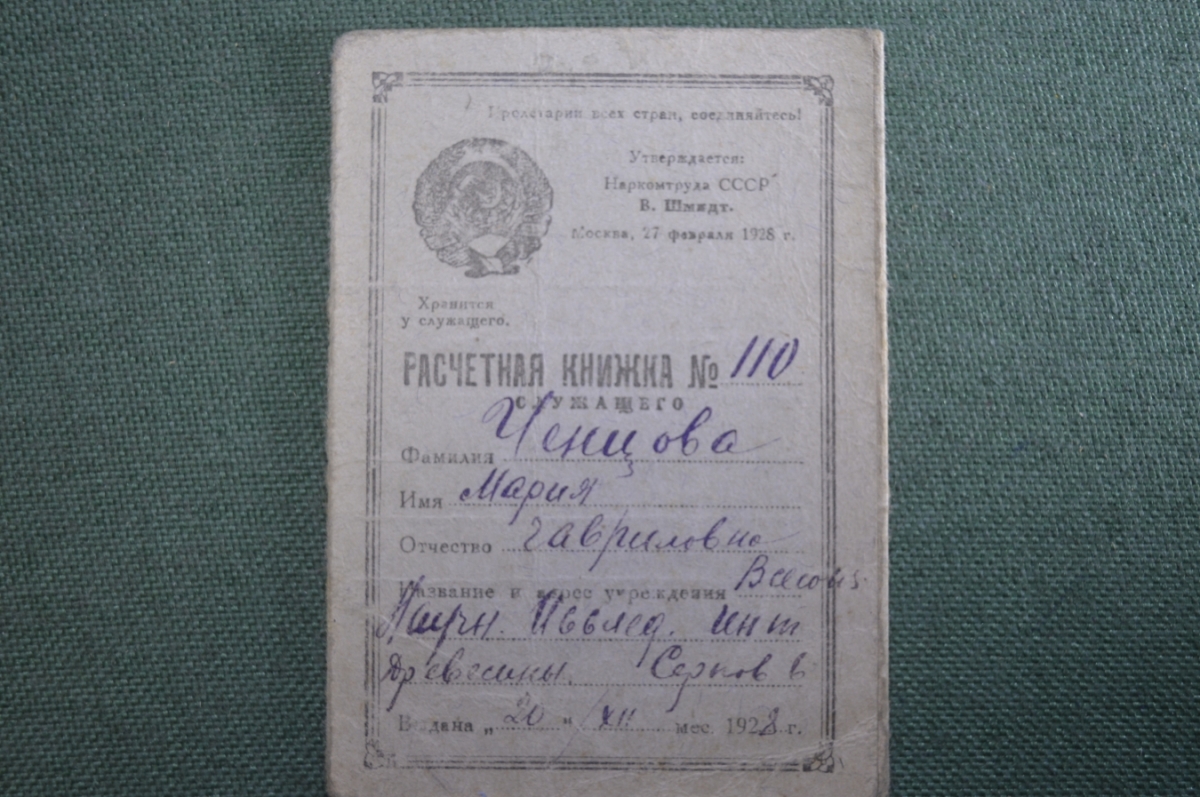 Пролетарии всех стран, соединяйтесь!
Утверждается:
Наркомтруда СССР
В. Шмидт.
Москва, 27 февраля 1928 г.
Хранится
у служащего.
РАСЧЕТНАЯ КНИЖКА № 110
СЛУЖАЩЕГО
Фамилия Ченцова
Имя Мария
Отчество Гавриловна
Название и адрес учреждения Всесоюз.
Научн. Исслед. Инт
Древесины.
Выдана „20" XII мес. 1928 г.